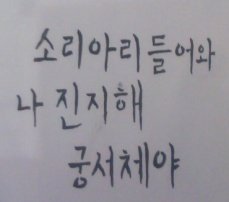 소리아리들어와
나 진지해
궁서체야